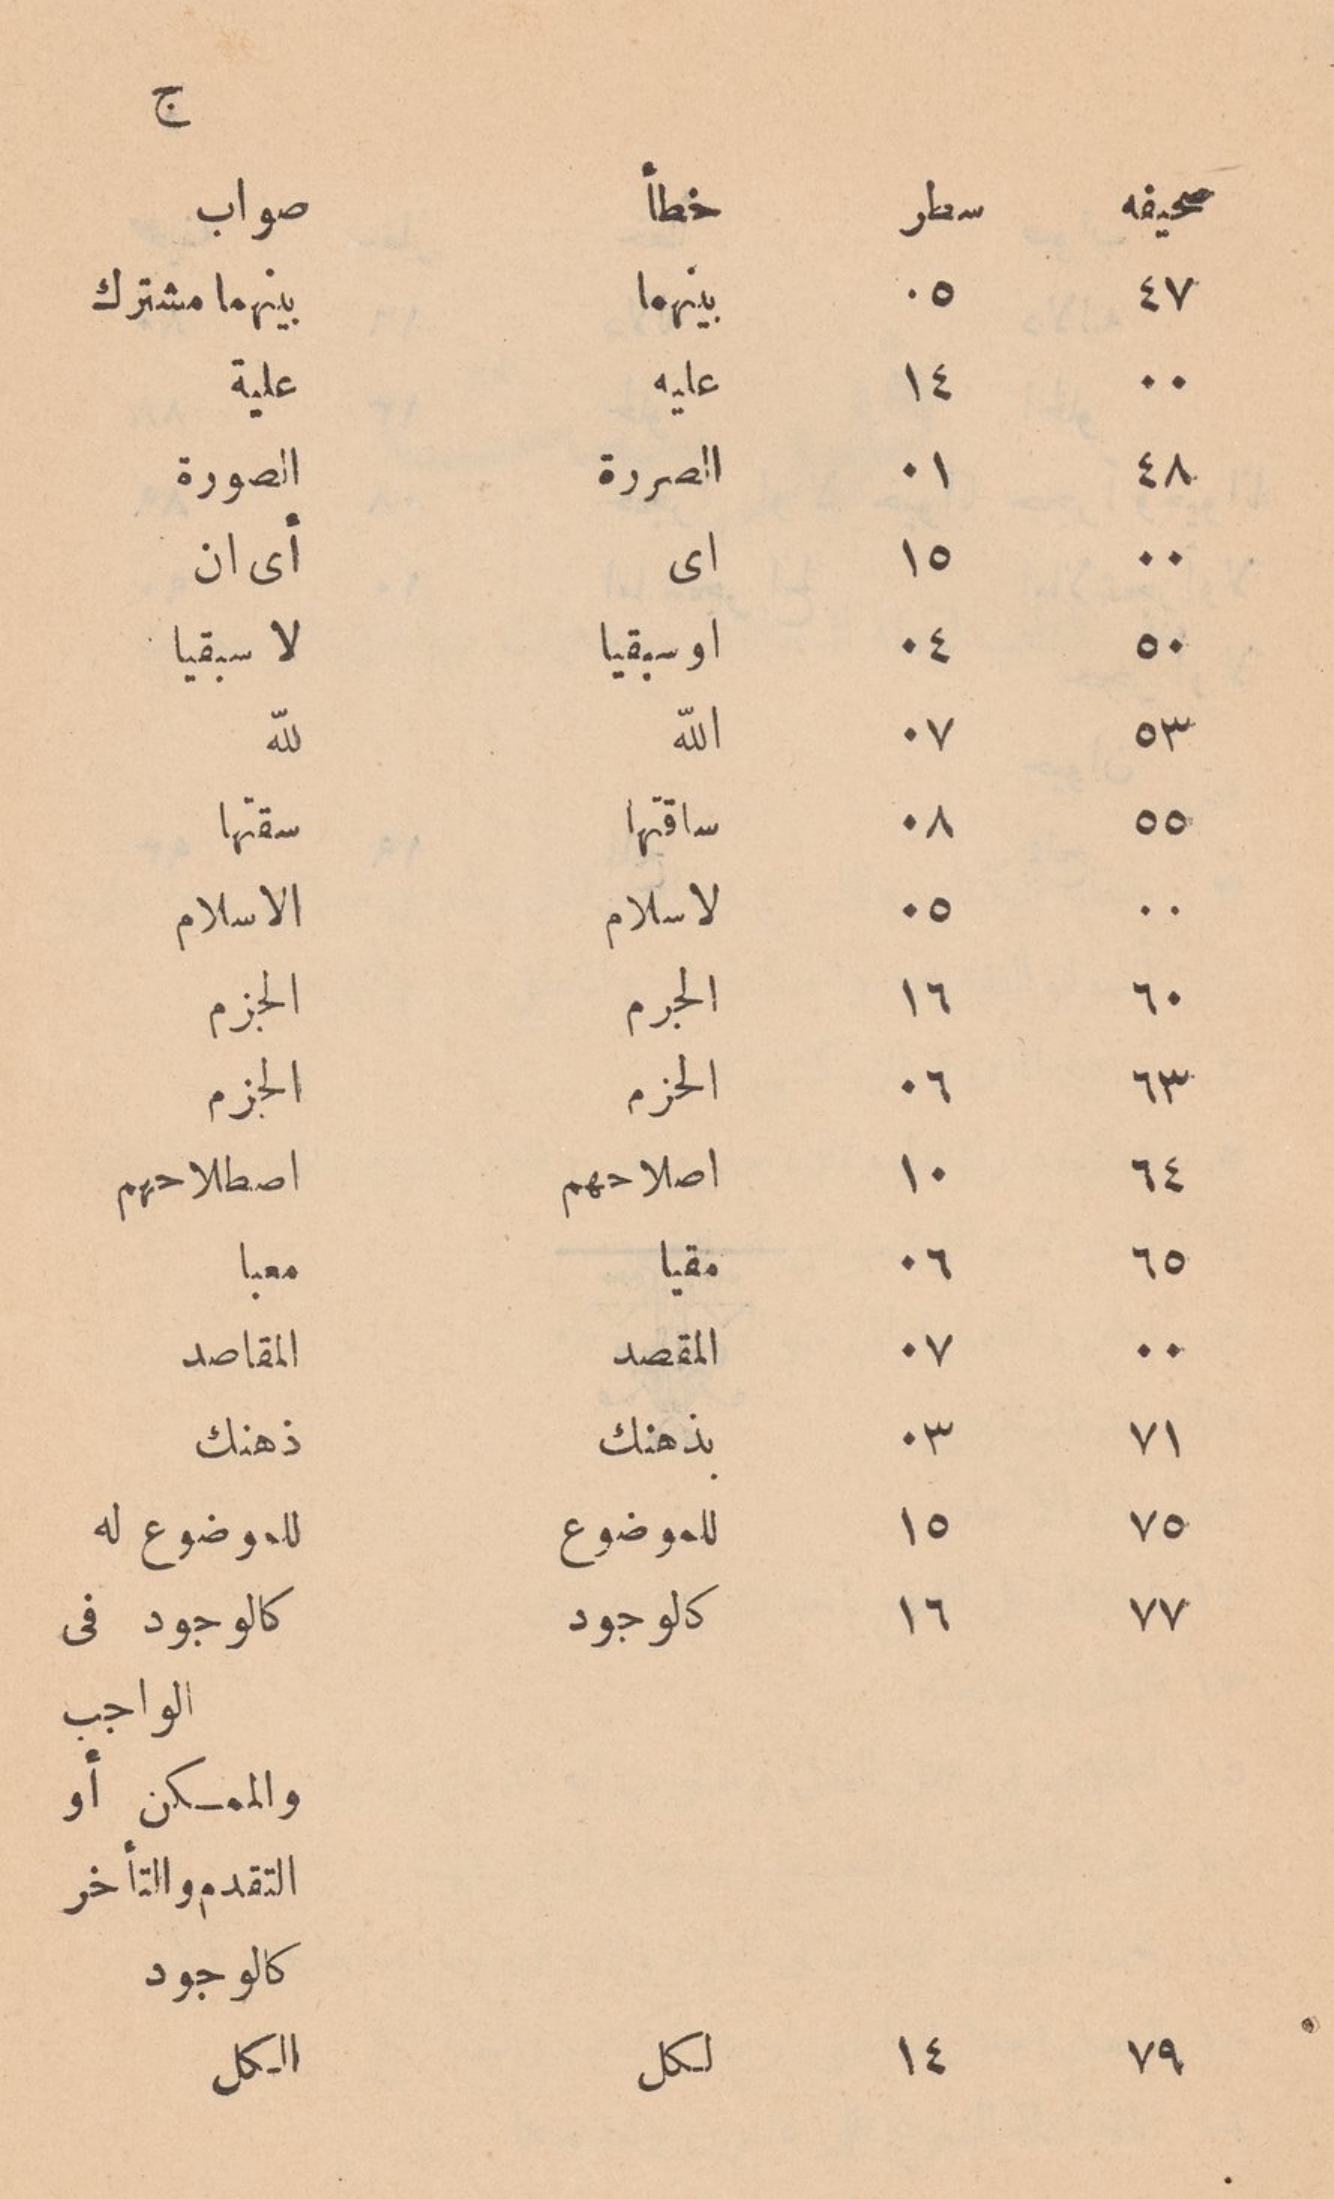 ج
صحيفه سطر خطأ صواب
٤٧ ٠٥ بينهما بينهما مشترك
٠٠ ١٤ عليه علية
٤٨ ٠١ الصررة الصورة
٠٠ ١٥ اى أى ان
٥٠ ٠٤ او سبقيا لا سبقيا
٥٣ ٠٧ الله لله
٥٥ ٠٨ ساقتها سقتها
٠٠ ٠٥ لاسلام الاسلام
٦٠ ١٦ الجرم الجزم
٦٣ ٠٦ الحزم الجزم
٦٤ ١٠ اصلاحهم اصطلاحهم
٦٥ ٠٦ مقيا معبا
٠٠ ٠٧ المقصد المقاصد
٧١ ٠٣ بذهنك ذهنك
٧٥ ١٥ للموضوع للموضوع له
٧٧ ١٦ كالوجود كالوجود فى
الواجب
والممكن أو
التقدم والتأخر
كالوجود
٧٩ ١٤ لكل الكل